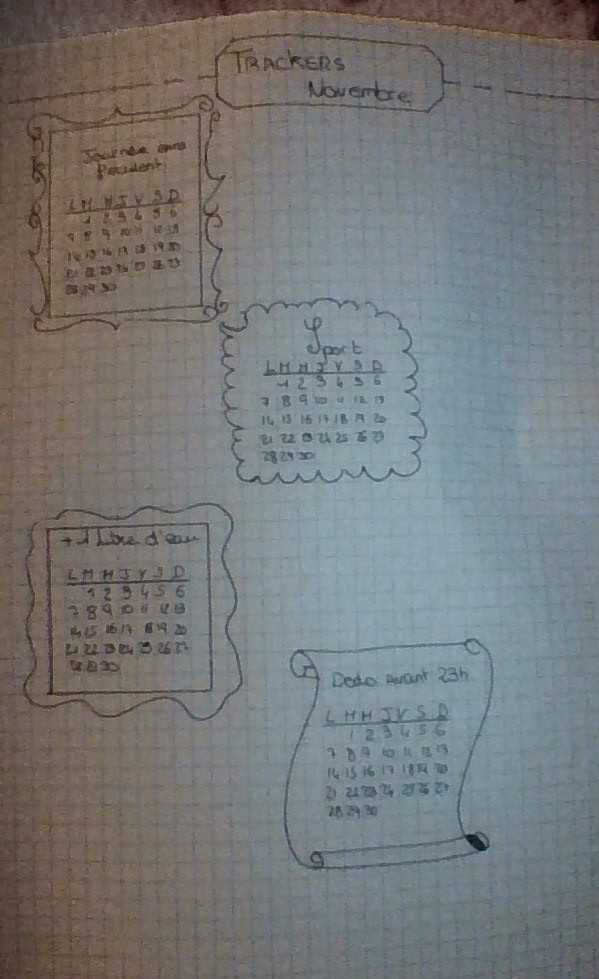 TRACKERS
Novembre
Journée sans
L M M J V S D
1 2 3 4 5 6
7 8 9 10 11 12 13
14 15 16 17 18 19 20
21 22 23 24 25 26 27
28 29 30
Sport
L M M J V S D
1 2 3 4 5 6
7 8 9 10 11 12 13
14 15 16 17 18 19 20
21 22 23 24 25 26 27
28 29 30
+ 1 Litre d'eau
L M M J V S D
1 2 3 4 5 6
7 8 9 10 11 12 13
14 15 16 17 18 19 20
21 22 23 24 25 26 27
28 29 30
Dodo Avant 23h
L M M J V S D
1 2 3 4 5 6
7 8 9 10 11 12 13
14 15 16 17 18 19 20
21 22 23 24 25 26 27
28 29 30